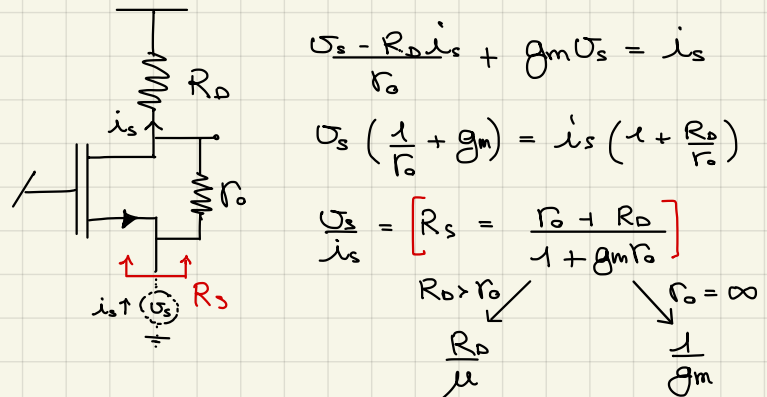 R_D
i_s
r_o
i_s ↑ v_s R_s
(v_s - R_D i_s)/r_o + g_m v_s = i_s
v_s (1/r_o + g_m) = i_s (1 + R_D/r_o)
v_s/i_s = [R_s = (r_o + R_D)/(1 + g_m r_o)]
R_D > r_o
r_o = ∞
R_D/μ
1/g_m